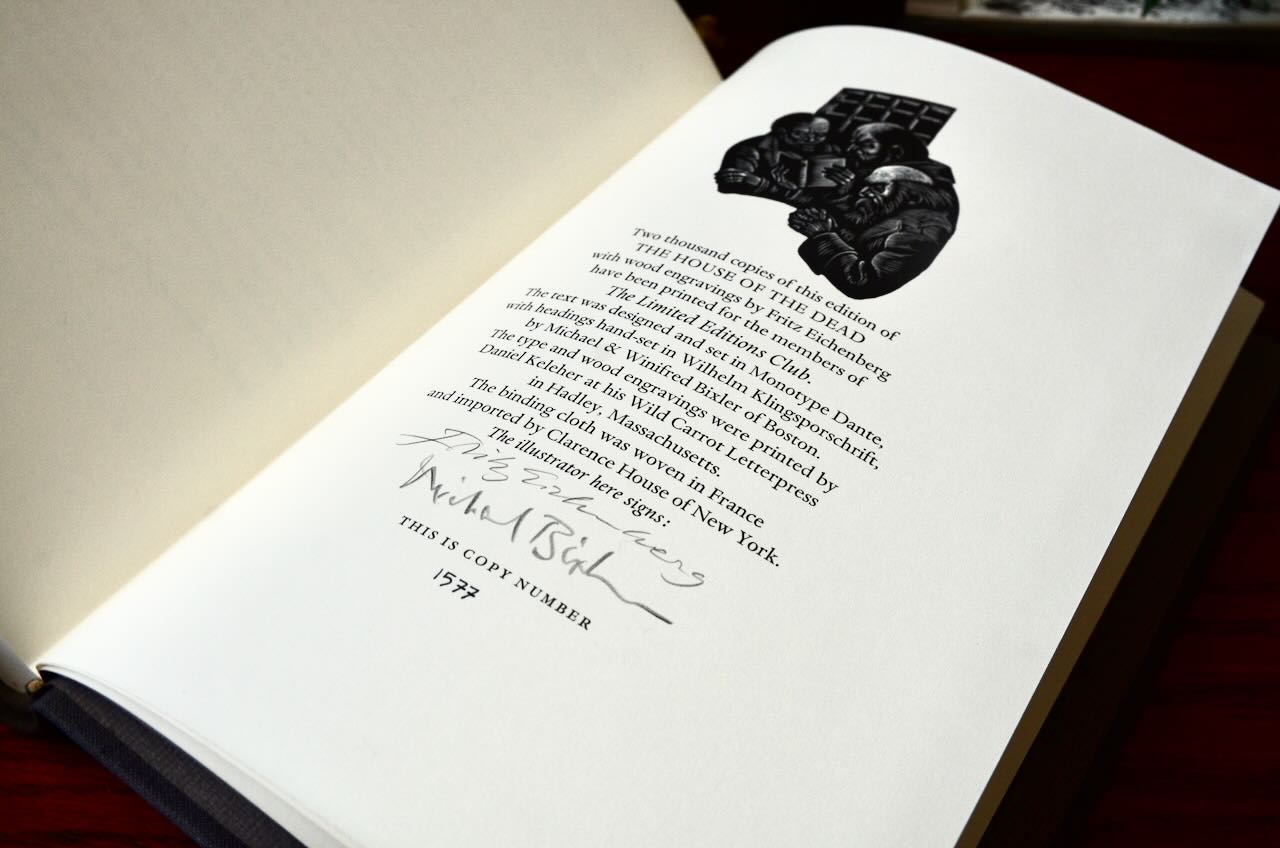 Two thousand copies of this edition of
THE HOUSE OF THE DEAD
with wood engravings by Fritz Eichenberg
have been printed for the members of
The Limited Editions Club.
The text was designed and set in Monotype Dante,
with headings hand-set in Wilhelm Klingsporschrift,
by Michael & Winifred Bixler of Boston.
The type and wood engravings were printed by
Daniel Keleher at his Wild Carrot Letterpress
in Hadley, Massachusetts.
The binding cloth was woven in France
and imported by Clarence House of New York.
The illustrator here signs:
Fritz Eichenberg
Michael Bixler
THIS IS COPY NUMBER
1577